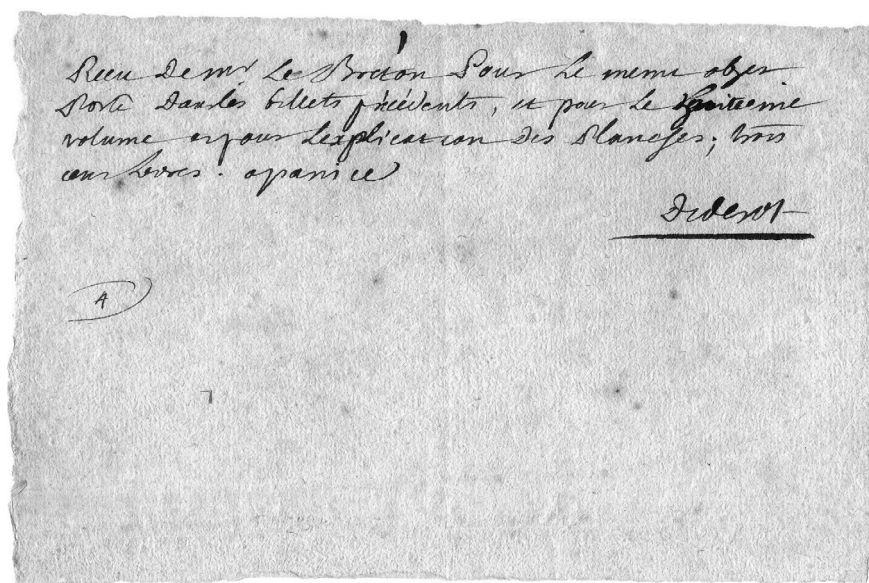 Recu de mr Le Breton Pour Le meme objet
Porté dans les billets précédents, et pour Le huitieme
volume et pour L'explication des Planches; trois
cent Livres. a paris ce
Diderot
A